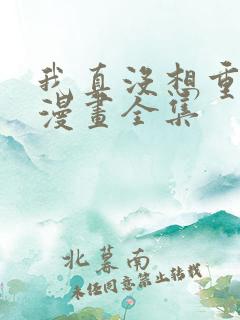 我真没想重
漫畫全集
北暮南
未经同意禁止转载